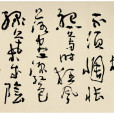 不須惆悵
怨芳時狂風
落盡深紅色
綠葉成陰